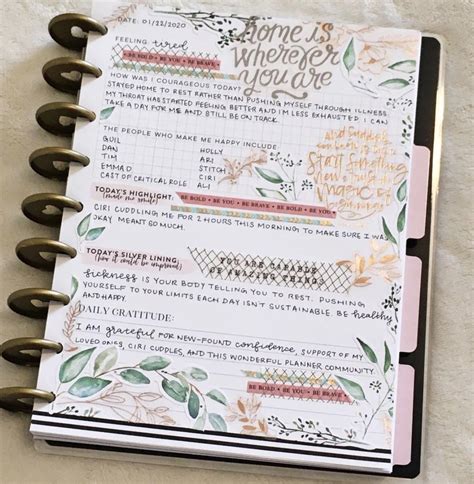 DATE: 01/22/2020
home is
wherever
you are
FEELING: tired
BE BOLD • BE YOU • BE BRAVE
HOW WAS I COURAGEOUS TODAY?
STAYED HOME TO REST RATHER THAN PUSHING MYSELF THROUGH ILLNESS.
MY THROAT HAS STARTED FEELING BETTER AND I'M LESS EXHAUSTED. I CAN
TAKE A DAY FOR ME AND STILL BE ON TRACK.
THE PEOPLE WHO MAKE ME HAPPY INCLUDE:
GUIL HOLLY
DAN ARI
TIM STITCH
EMMA D CIRI
CAST OF CRITICAL ROLE ALI
and suddenly
you
start something
new & trust the
magic of
beginnings
TODAY'S HIGHLIGHT:
(made me smile)
BE BOLD • BE YOU • BE BRAVE • BE BOLD • BE YOU • BE BRAVE
CIRI CUDDLING ME FOR 2 HOURS THIS MORNING TO MAKE SURE I WAS
OKAY MEANT SO MUCH.
TODAY'S SILVER LINING:
(how it could be improved)
YOU ARE CAPABLE
OF AMAZING THINGS
SICKNESS IS YOUR BODY TELLING YOU TO REST. PUSHING
YOURSELF TO YOUR LIMITS EACH DAY ISN'T SUSTAINABLE. BE healthy
AND HAPPY.
DAILY GRATITUDE:
I AM grateful FOR NEW-FOUND confidence, SUPPORT OF MY
LOVED ONES, CIRI CUDDLES, AND THIS WONDERFUL PLANNER COMMUNITY.
BE BOLD • BE YOU • BE BRAVE • BE BOLD • BE YOU • BE BRAVE